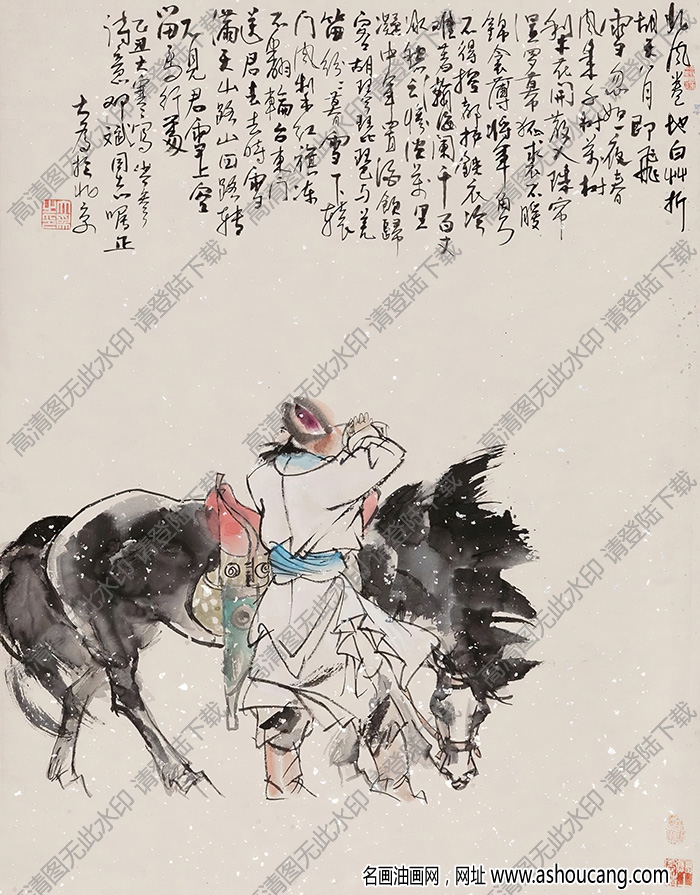 北風卷地白艸折
胡天八月即飛
雪忽如一夜春
風來千树萬树
梨花開散入珠帘
湿羅幕狐裘不暖
錦衾薄将軍角弓
不得控都护鐵衣冷
難着瀚海闌干百丈
冰愁云惨淡萬里
凝中軍置酒飲歸
客胡琴琵琶与羌
笛纷纷暮雪下辕
门風掣红旗凍
不翻輪台東门
送君去去時雪
满天山路山回路转
不見君雪上空
留馬行處
乙丑大寒寫岑参
詩意 斌同志嘱正
大為於北京
高清图无此水印 请登陆下载
名画油画网，网址 www.ashoucang.com